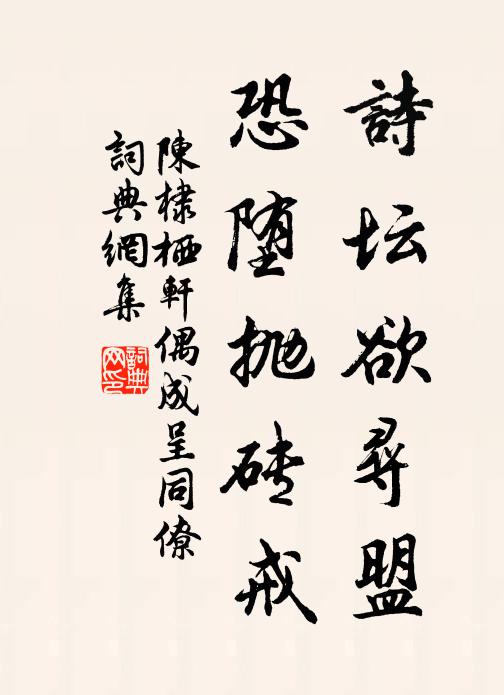 詩坛欲尋盟
恐堕抛砖戒
陳棣栖軒偶成呈同僚
詞典網集
詞典
网印